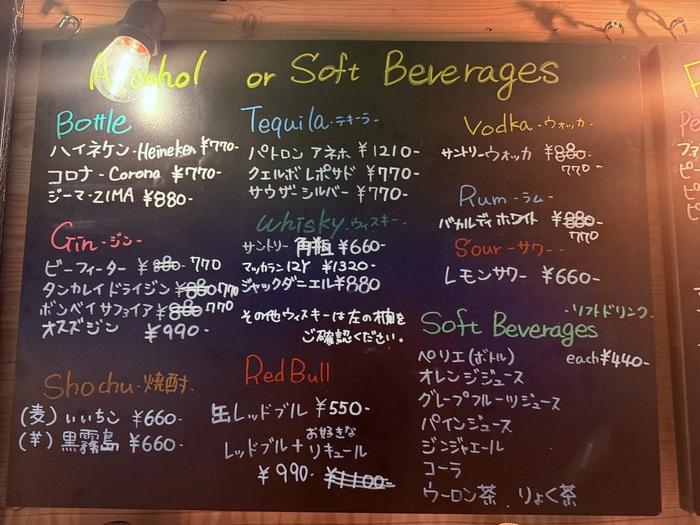 Alcohol or Soft Beverages
Bottle
ハイネケン-Heineken ¥770-
コロナ-Corona ¥770-
ジーマ-ZIMA ¥880-
Gin-ジン-
ビーフィーター ¥880- 770
タンカレイドライジン ¥880 770
ボンベイサファイア ¥880 770
オスズジン ¥990-
Shochu-焼酎
(麦) いいちこ ¥660-
(芋) 黒霧島 ¥660-
Tequila-テキーラ-
パトロン アネホ ¥1210-
クエルボ レポサド ¥770-
サウザ シルバー ¥770-
Whisky-ウィスキー-
サントリー 角瓶 ¥660-
マッカラン12Y ¥1320-
ジャックダニエル ¥880
その他ウィスキーは左の棚を
ご確認ください。
Red Bull
缶レッドブル ¥550-
レッドブル+お好きなリキュール
¥990- ¥1100-
Vodka-ウォッカ-
サントリーウォッカ ¥880-
770-
Rum-ラム-
バカルディ ホワイト ¥880-
770
Sour-サワー-
レモンサワー ¥660-
Soft Beverages -ソフトドリンク-
each ¥440-
ペリエ(ボトル)
オレンジジュース
グレープフルーツジュース
パインジュース
ジンジャエール
コーラ
ウーロン茶、りょく茶